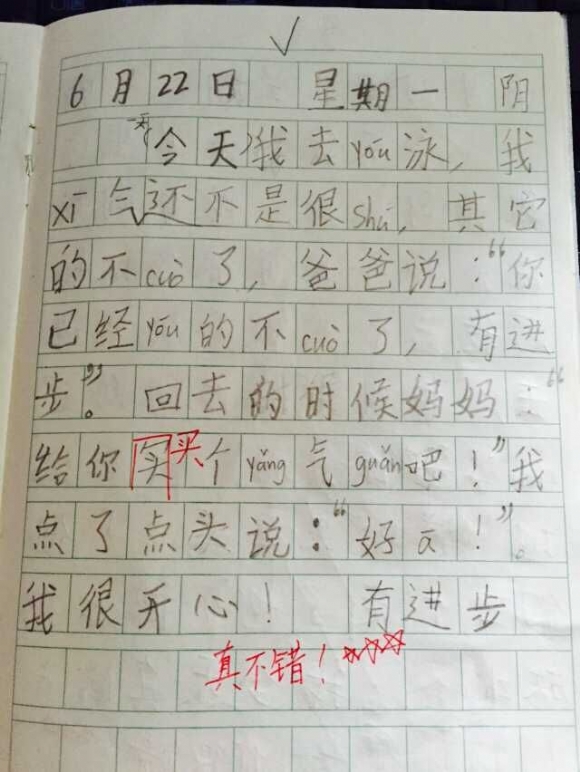 6月22日 星期一 阴
今天我去yóu泳，我
xī气还不是很shú，其它
的不cuò了，爸爸说：“你
已经yóu的不cuò了，有进
步”。回去的时候妈妈：“
给你实买个yǎng气guǎn吧！”我
点了点头说：“好ā！”。
我很开心！ 有进步
真不错！☆☆☆